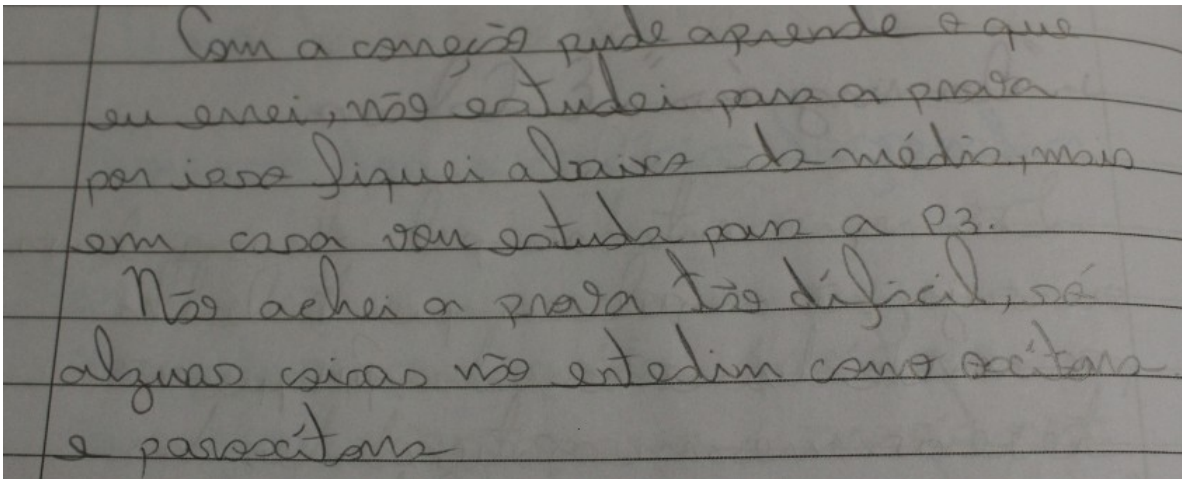 Com a correção pude aprende o que
eu errei, não estudei para a prova
por isso fiquei abaixo da média, mais
em casa vou estuda para a P3.
Não achei a prova tão difícil, só
alguas coisas não entedim como oxítona
e paroxítona